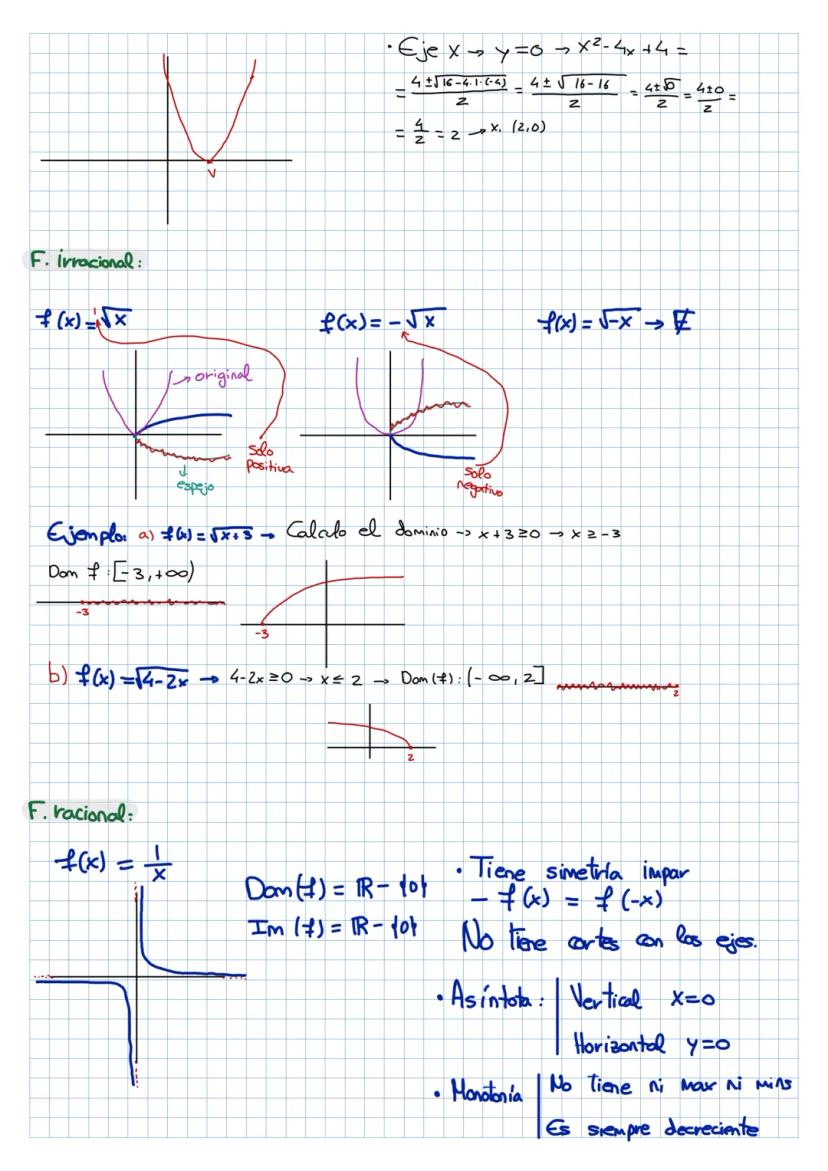 · Eje x → y=0 → x²-4x+4 =
= 4±√16-4·1·(-4)/2 = 4±√16-16/2 = 4±√0/2 = 4±0/2 =
= 4/2 = 2 → x. (2,0)
v
F. irracional:
f(x)=√x
f(x)= -√x
f(x)=√-x → ∄
→ original
solo positiva
espejo
solo negativo
Ejemplo: a) f(x)=√x+3 → Calculo el dominio → x+3≥0 → x≥-3
Dom f:[-3,+∞)
-3
-3
b) f(x)=√4-2x → 4-2x≥0 → x≤2 → Dom(f):(-∞,2]
2
2
F. racional:
f(x) = 1/x
Dom(f) = ℝ - {0}
Im (f) = ℝ - {0}
· Tiene simetría impar
- f(x) = f(-x)
No tiene cortes con los ejes.
· Asíntota: | Vertical x=0
Horizontal y=0
· Monotonía | No tiene ni max ni mins
Es siempre decreciente